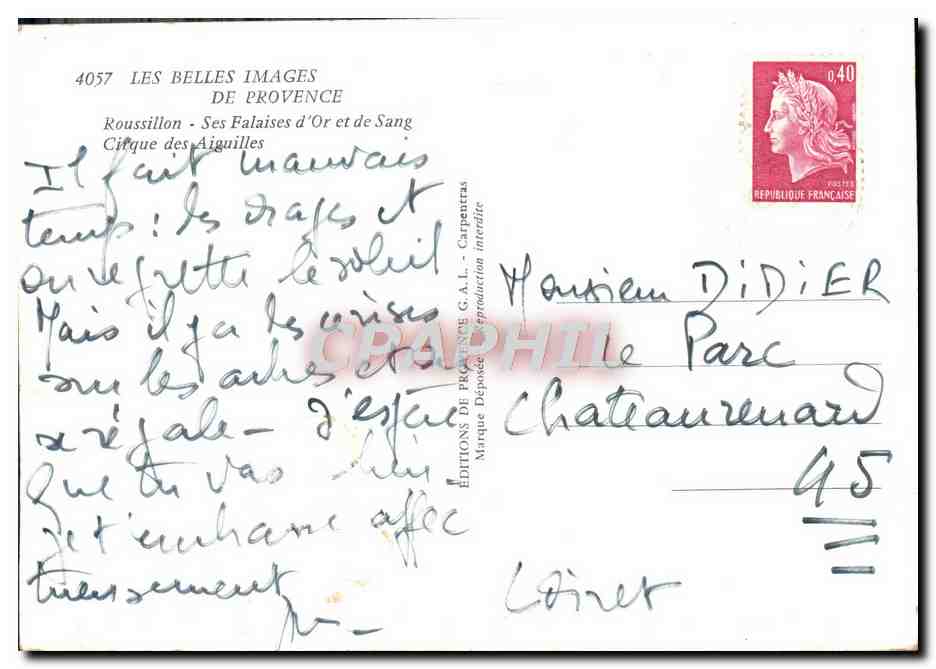 4057 LES BELLES IMAGES
DE PROVENCE
Roussillon - Ses Falaises d'Or et de Sang
Cirque des Aiguilles
Il fait mauvais
temps : les orages et
on regrette le soleil
Mais il y a des cerises
sur les arbres et on
se régale - J'espère
que tu vas bien
je t'embrasse affec
tueusement
ÉDITIONS DE PROVENCE G.A.L. - Carpentras
Marque Déposée - Reproduction interdite
CPAPHIL
0,40
POSTES
REPUBLIQUE FRANÇAISE
Monsieur DiDiER
Le Parc
Chateaurenard
45
Loiret